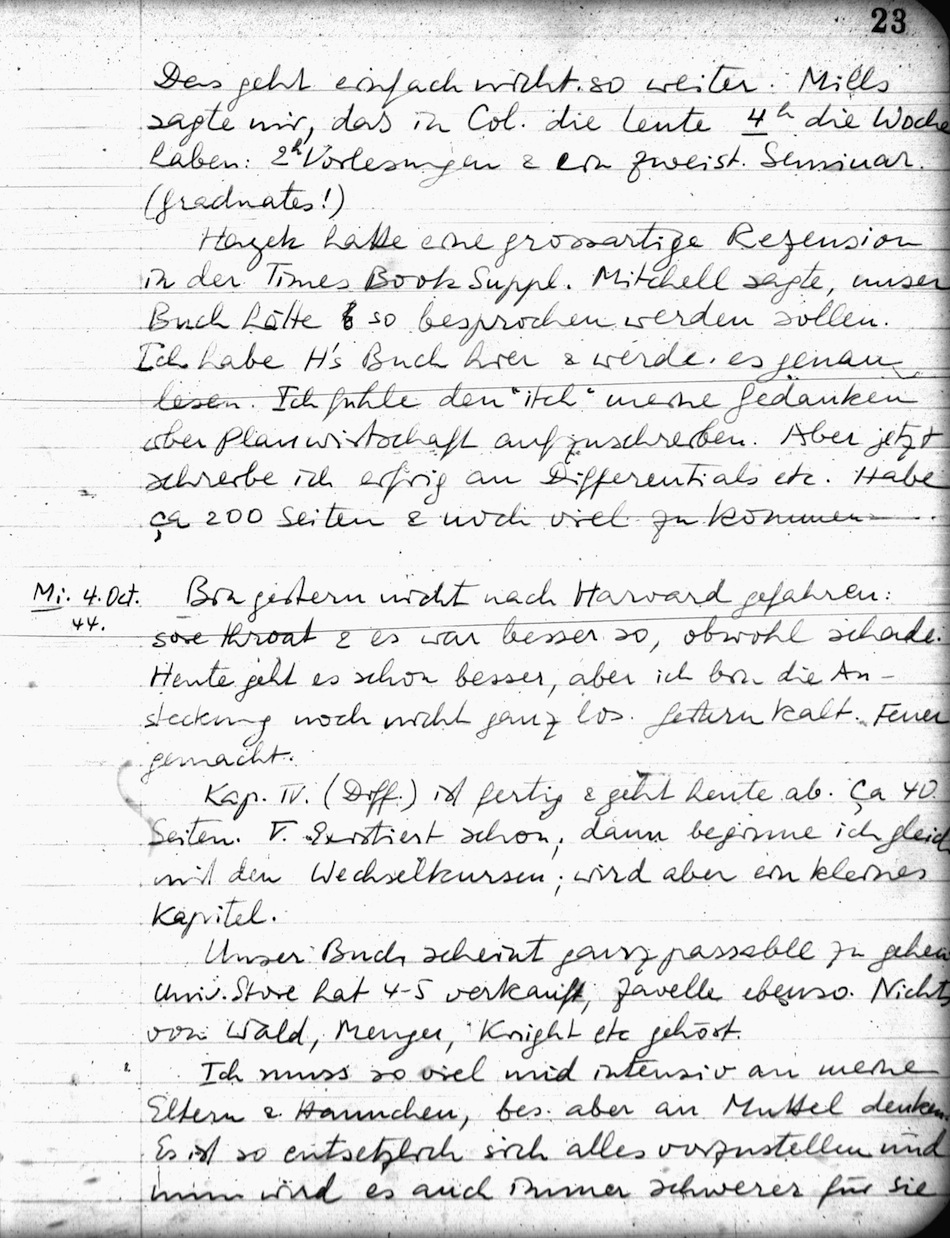 23
Das geht einfach nicht so weiter. Mills
sagte mir, dass in Col. die Leute 4h die Woche
haben: 2h Vorlesungen & ein zweist. Seminar.
(graduates!)
Hayek hatte eine grossartige Rezension
in der Times Book Suppl. Mitchell sagte, unser
Buch hätte so besprochen werden sollen.
Ich habe H's Buch hier & werde es genau
lesen. Ich fühle den "itch" meine Gedanken
über Planwirtschaft aufzuschreiben. Aber jetzt
schreibe ich eifrig an Differentials etc. Habe
ca 200 Seiten & noch viel zu kommen.
Mi. 4. Oct. Bin gestern nicht nach Harvard gefahren:
44. sore throat & es war besser so, obwohl schade.
Heute geht es schon besser, aber ich bin die An-
steckung noch nicht ganz los. Gestern kalt. Feuer
gemacht.
Kap. IV. (Diff.) ist fertig & geht heute ab. Ca 40
Seiten. V. Existiert schon, dann beginne ich gleich
mit den Wechselkursen; wird aber ein kleines
Kapitel.
Unser Buch scheint ganz passabel zu gehen
Univ. Store hat 4-5 verkauft, Zavelle ebenso. Nichts
von Wald, Menger, Knight etc gehört.
Ich muss so viel und intensiv an meine
Eltern & Hannchen, bes. aber an Muttel denken.
Es ist so entsetzlich sich alles vorzustellen und
nun wird es auch immer schwerer für sie